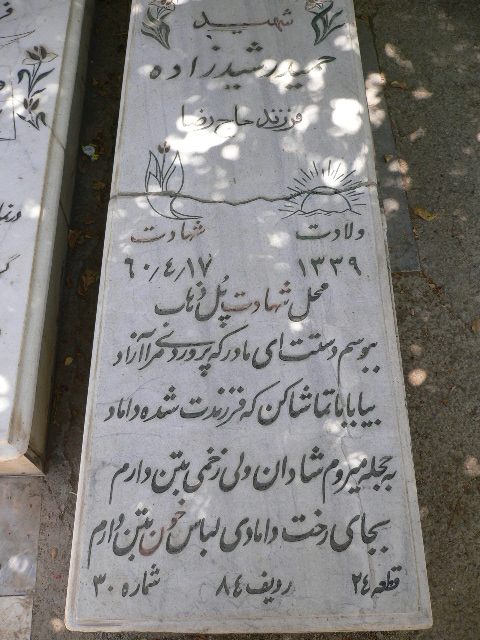 شهید
حمید رشیدزاده
فرزند حاج رضا
ولادت شهادت
۱۳۳۹ ۶۰/٤/۱۷
محل شهادت پُل ذهاب
ببوسم دستت ای مادر که پروردی مرا آزاد
بیا بابا تماشا کن که فرزندت شده داماد
به حجله میروم شادان ولی زخمی بتن دارم
بجای رخت دامادی لباس خون بتن دارم
قطعه ۲٤ ردیف ۸٤ شماره ۳۰